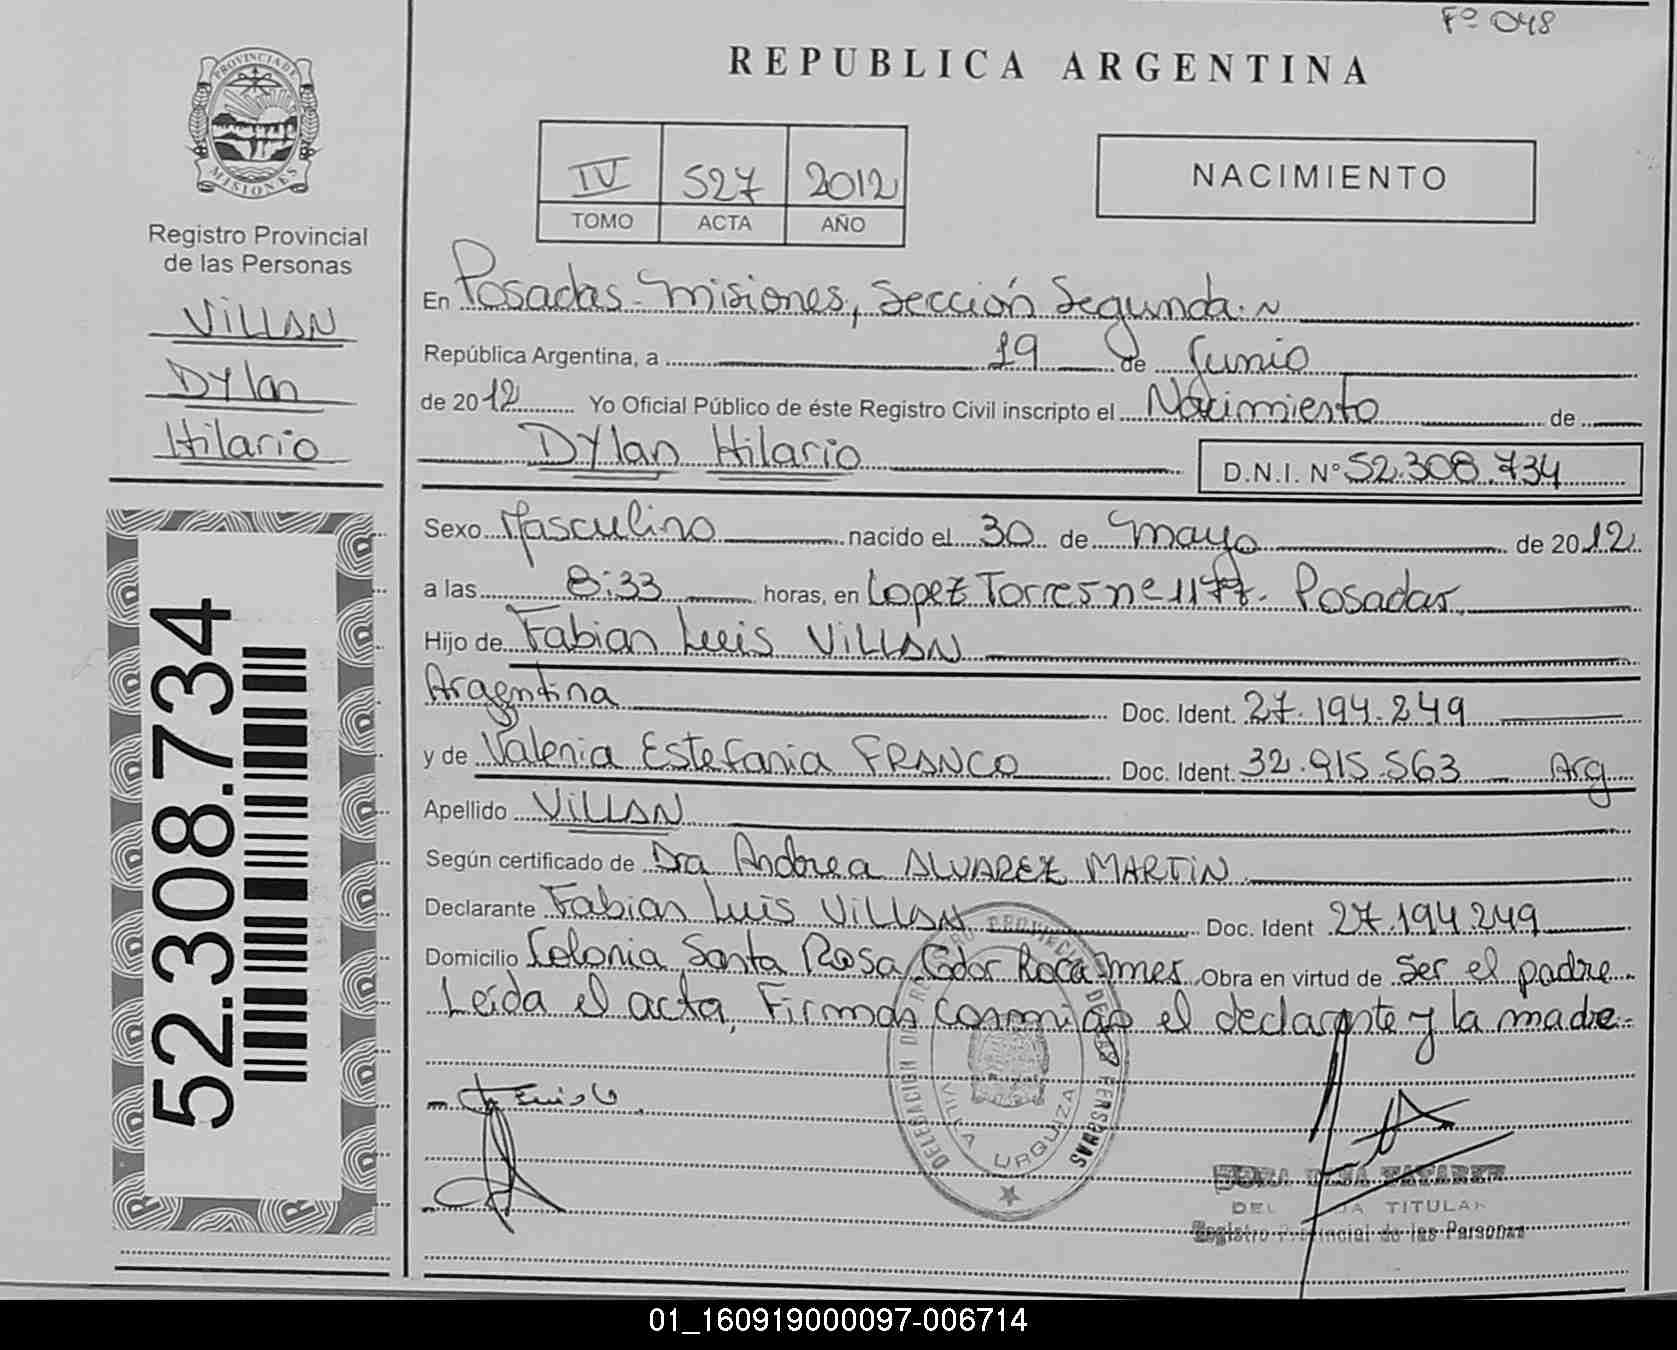 Fº 048
REPUBLICA ARGENTINA
PROVINCIA DE
MISIONES
Registro Provincial
de las Personas
VILLAN
Dylan
Hilario
IV 527 2012
TOMO ACTA AÑO
NACIMIENTO
En Posadas - Misiones, Sección Segunda
República Argentina, a 19 de Junio
de 2012 Yo Oficial Público de éste Registro Civil inscripto el Nacimiento de
Dylan Hilario D.N.I. Nº 52.308.734
Sexo Masculino nacido el 30 de mayo de 2012
a las 8:33 horas, en Lopez Torres nº 1177. Posadas
Hijo de Fabian Luis VILLAN
Argentina Doc. Ident. 27.194.249
y de Valeria Estefania FRANCO Doc. Ident. 32.915.563 Arg
Apellido VILLAN
Según certificado de Dra Andrea ALVAREZ MARTIN
Declarante Fabian Luis VILLAN Doc. Ident 27.194.249
Domicilio Colonia Santa Rosa Obra en virtud de Ser el padre
Leída el acta, Firman conmigo el declarante y la madre
52.308.734
DELEGACION DE REGISTRO PROVINCIAL DE LAS PERSONAS
VILLA URQUIZA
TITULAR
Registro Provincial de las Personas
01_160919000097-006714